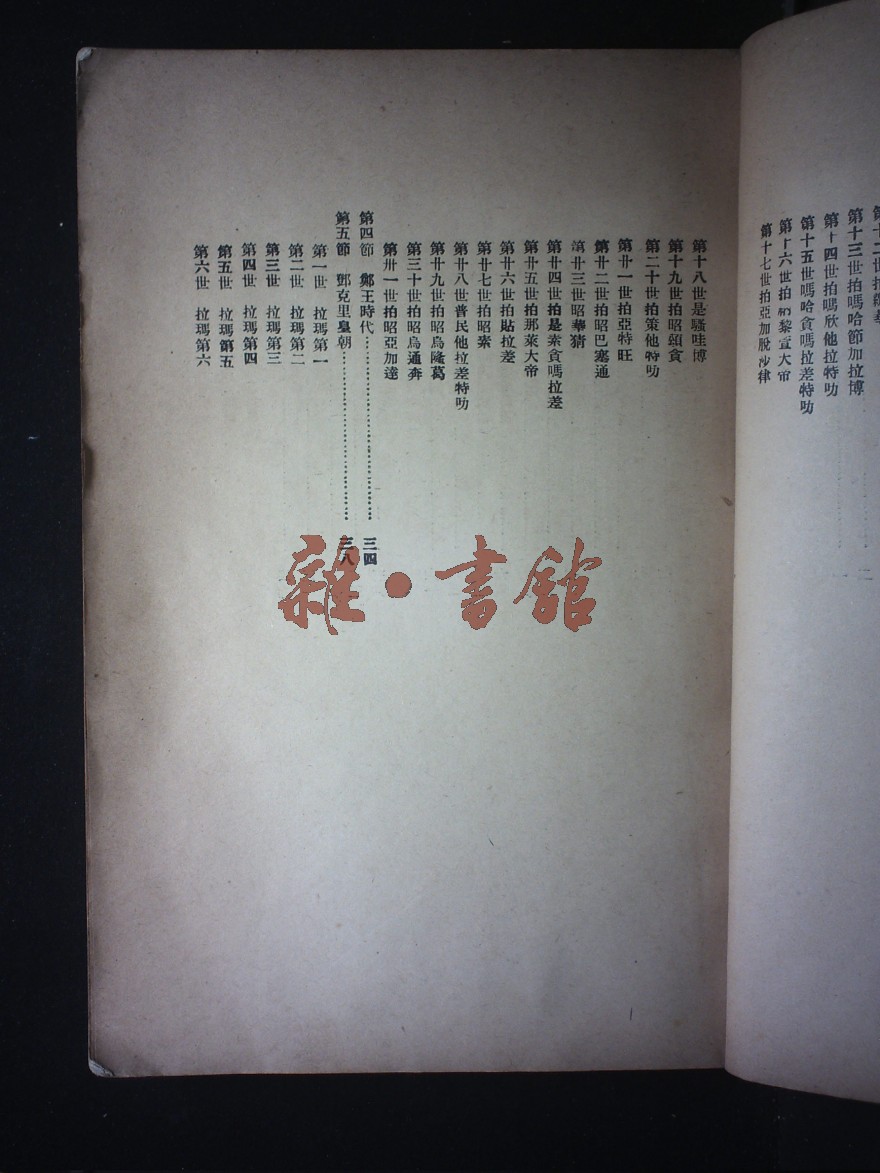 第十三世拍嗎哈節加拉博
第十四世拍嗎欣他拉特叻
第十五世嗎哈貪嗎拉差特叻
第十六世拍 黎萱大帝
第十七世拍亞加脫沙律
第十八世是騷哇博
第十九世拍昭頌貪
第二十世拍策他特叻
第廿一世拍亞特旺
第廿二世拍昭巴塞通
第廿三世昭華猜
第廿四世拍是素貪嗎拉差
第廿五世拍那萊大帝
第廿六世拍貼拉差
第廿七世拍昭素
第廿八世普民他拉差特叻
第廿九世拍昭烏隆葛
第三十世拍昭烏通奔
第卅一世拍昭亞加達
第四節　鄭王時代……………………三四
第五節　鄧克里皇朝……………………三八
第一世　拉瑪第一
第二世　拉瑪第二
第三世　拉瑪第三
第四世　拉瑪第四
第五世　拉瑪第五
第六世　拉瑪第六
雜·書館